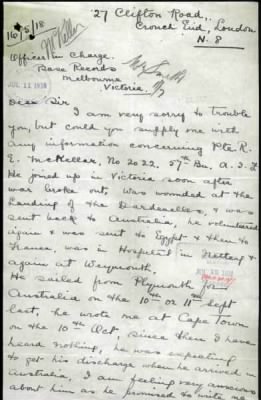 27 Clifton Road,
Crouch End, London
N. 8
16/5/18
McKellar
Officer in Charge,
Base Records
Melbourne
Victoria.
JUL 11 1918
Dear Sir
I am very sorry to trouble
you, but could you supply me with
any information concerning Pte R.
E. McKellar. No 2022. 57th Bn A.I.F.
He joined up in Victoria soon after
war broke out, was wounded at the
Landing of the Dardanelles, & was
sent back to Australia, he volunteered
again & was sent to Egypt & then to
France, was in Hospital in Netley &
again at Weymouth.
He sailed from Plymouth for
Australia on the 10th or 11th Sept
last, he wrote me at Cape Town
on the 10th Oct, since then I have
heard nothing, he was expecting
to get his discharge when he arrived in
Australia, I am feeling very anxious
about him as he promised to write me